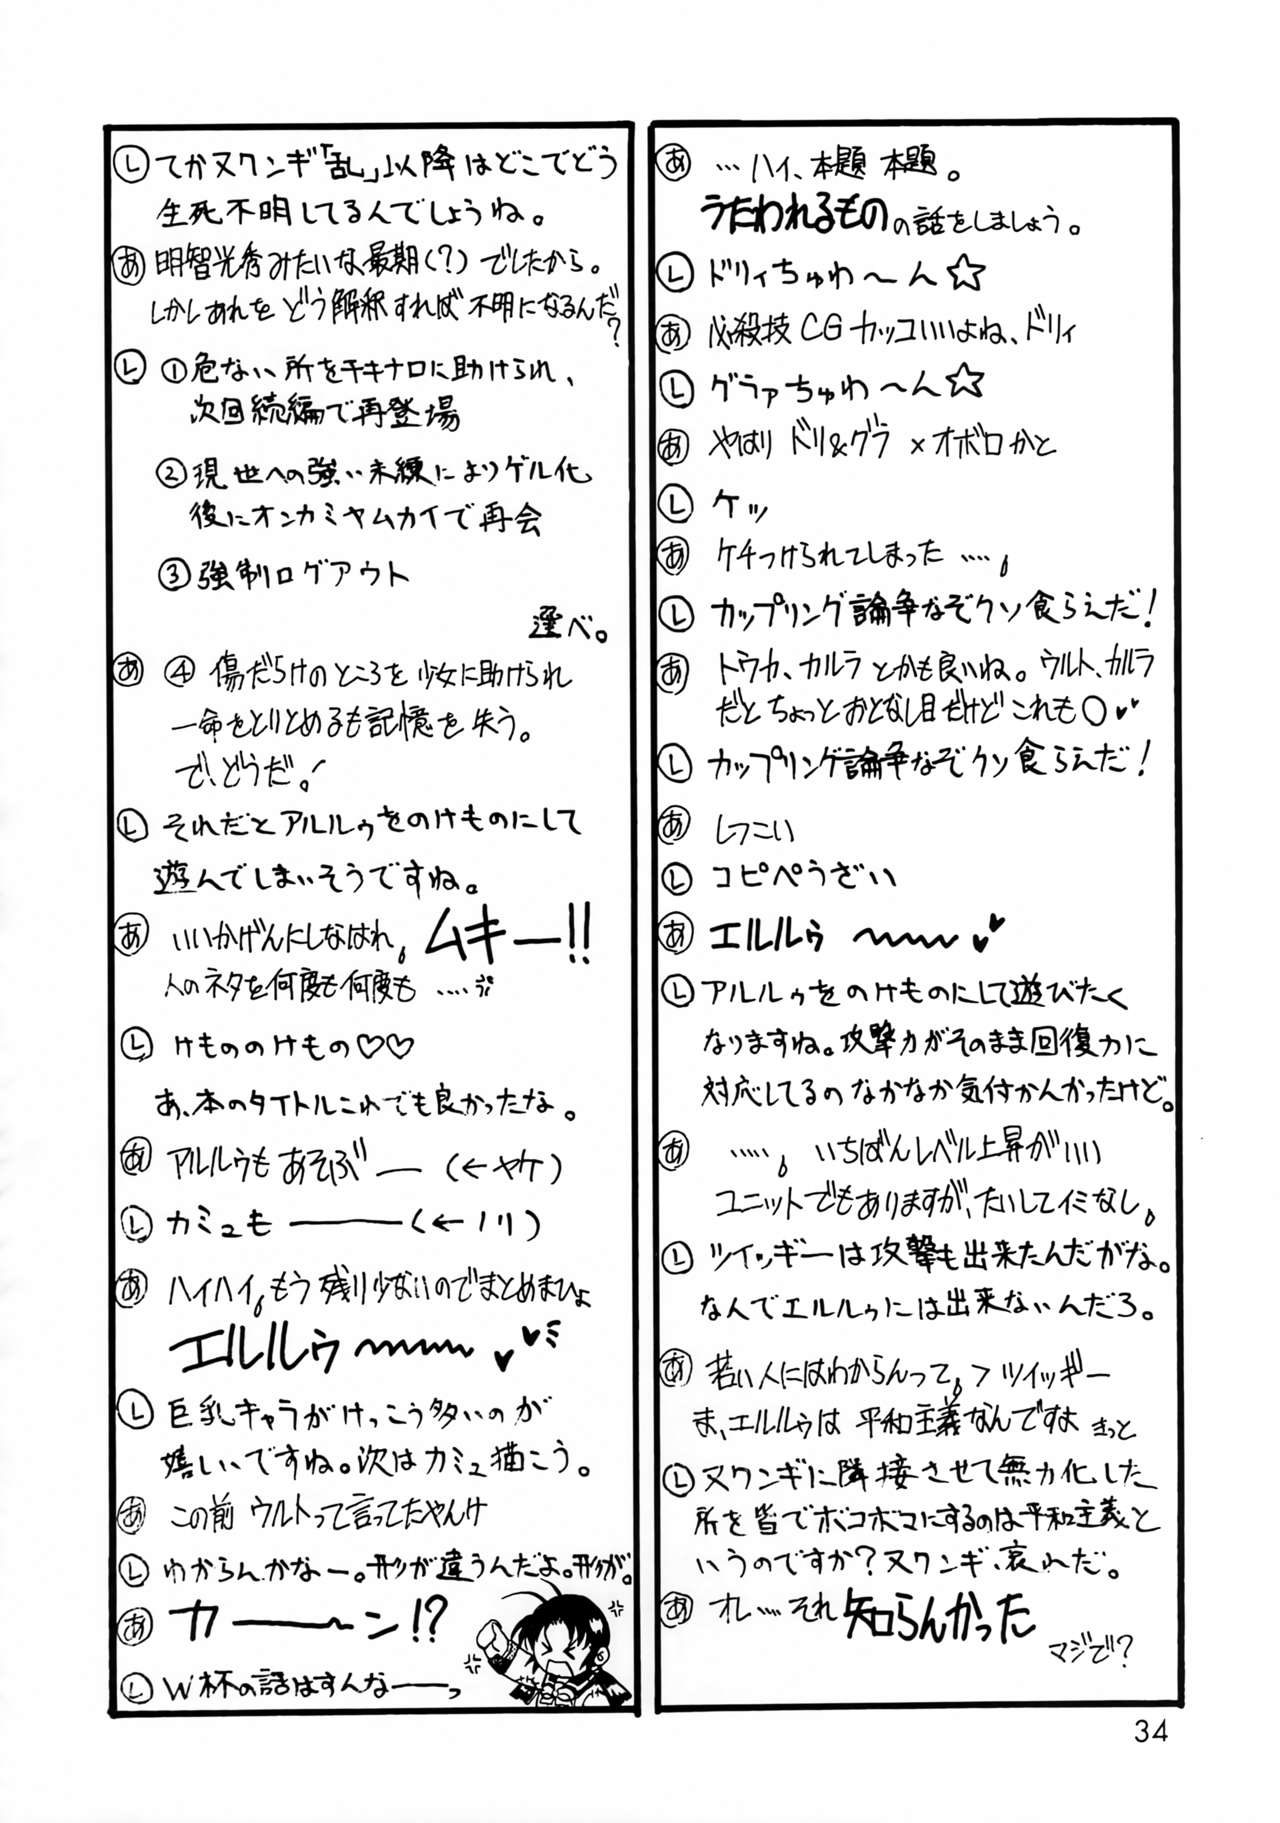 あ …ハイ、本題 本題。
うたわれるものの話をしましょう。
L ドリィちゅわ〜ん☆
あ 必殺技CGカッコいいよね、ドリィ
L グラァちゅわ〜ん☆
あ やはり ドリ&グラ×オボロかと
L ケッ
あ ケチつけられてしまった……。
L カップリング論争なぞクソ食らえだ!
あ トウカ、カルラ とかも良いね。ウルト、カルラ
だと ちょっとおとなし目だけど これも○♥♥
L カップリング論争なぞクソ食らえだ!
あ しつこい
L コピペうざい
あ エルルゥ 〜〜〜♥♥
L アルルゥをのけものにして遊びたく
なりますね。攻撃力がそのまま回復力に
対応してるのなかなか気付かんかったけど。
あ ……。いちばんレベル上昇がいい
ユニットでもありますが、たいしてイミなし。
L ツイッギーは攻撃も出来たんだがな。
なんでエルルゥには出来ないんだろ。
あ 若い人にはわからんって。>ツイッギー
ま、エルルゥは 平和主義なんですよ きっと
L ヌワンギに隣接させて無力化した
所を皆でボコボコにするのは平和主義と
いうのですか?ヌワンギ、哀れだ。
あ オレ……それ知らんかった
マジで?
L てかヌワンギ「乱」以降はどこでどう
生死不明してるんでしょうね。
あ 明智光秀みたいな最期(?)でしたから。
しかしあれをどう解釈すれば不明になるんだ?
L ①危ない所をチキナロに助けられ、
次回続編で再登場
②現世への強い未練によりゲル化、
後にオンカミヤムカイで再会
③強制ログアウト
選べ。
あ ④ 傷だらけのところを少女に助けられ
一命をとりとめるも記憶を失う。
で、どうだ!
L それだとアルルゥをのけものにして
遊んでしまいそうですね。
あ いいかげんにしなはれ。ムキー!!
人のネタを何度も何度も……
L けもののけもの♡♡
あ、本のタイトルこれでも良かったな。
あ アルルゥもあそぶ――(←ヤケ)
L カミュも――――(←ノリ)
あ ハイハイ。もう残り少ないのでまとめまひょ
エルルゥ〜〜〜♥♥
L 巨乳キャラがけっこう多いのが
嬉しいですね。次はカミュ描こう。
あ この前ウルトって言ってたやんけ
L わからんかなー。形が違うんだよ。形が。
あ カ―――ン!?
L W杯の話はすんな――っ
34